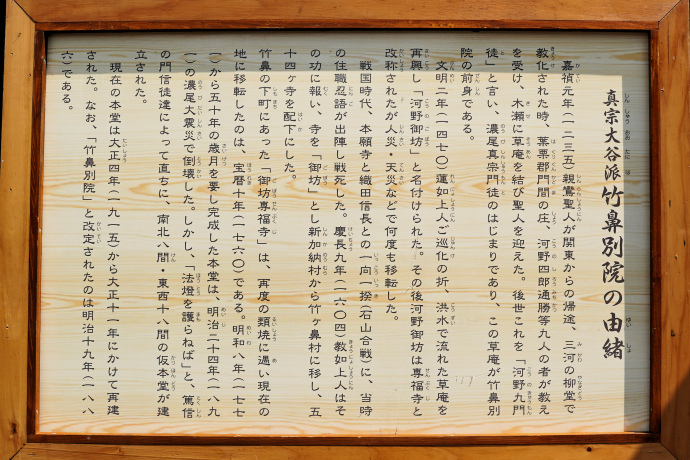 真宗大谷派竹鼻別院の由緒
嘉禎元年(一二三五)親鸞聖人が関東からの帰途、三河の柳堂で
教化された時、葉栗郡門間の庄、河野四郎通勝等九人の者が教え
を受け、木瀬に草庵を結び聖人を迎えた。後世これを「河野九門
徒」と言い、濃尾真宗門徒のはじまりであり、この草庵が竹鼻別
院の前身である。
文明二年(一四七〇)蓮如上人ご巡化の折、洪水で流れた草庵を
再興し「河野御坊」と名付けられた。その後河野御坊は専福寺と
改称されたが人災・天災などで何度も移転した。
戦国時代、本願寺と織田信長との一向一揆(石山合戦)に、当時
の住職忍語が出陣し戦死した。慶長九年(一六〇四)教如上人はそ
の功に報い、寺を「御坊」とし新加納村から竹ヶ鼻村に移し、五
十四ヶ寺を配下にした。
竹鼻の下町にあった「御坊専福寺」は、再度の類焼に遇い現在の
地に移転したのは、宝暦十年(一七六〇)である。明和八年(一七七
一)から五十年の歳月を要し完成した本堂は、明治二十四年(一八九
一)の濃尾大震災で倒壊した。しかし、「法燈を護らねば」と、篤信
の門信徒達によって直ちに、南北八間・東西十八間の仮本堂が建
立された。
現在の本堂は大正四年(一九一五)から大正十一年にかけて再建
された。なお、「竹鼻別院」と改定されたのは明治十九年(一八八
六)である。